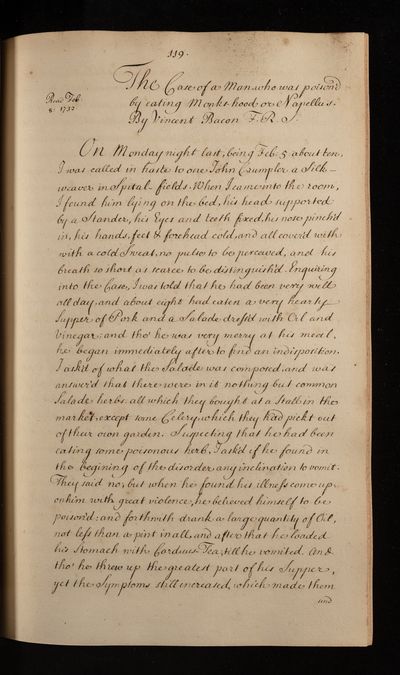 119.
The Case of a Man who was poison'd
Read Feb.
8. 1732
by eating Monks-hood or Napellus.
By Vincent Bacon F.R.S:
On Monday night last, being Feb. 5 about ten,
I was called in haste to one John Crumpler a Silk-
weaver in Spital-fields. When I came into the room,
I found him lying on the bed, his head supported
by a Stander, his Eyes and teeth fixed, his nose pinch'd
in, his hands, feet & forehead cold, and all cover'd with
with a cold Sweat, no pulse to be perceived, and his
breath so short as scarce to be distinguish'd. Enquiring
into the Case, I was told that he had been very well
all day, and about eight had eaten a very hearty
Supper of Pork and a Salade dress'd with Oil and
Vinegar; and tho' he was very merry at his meal,
he began immediately after to find an indisposition.
I ask'd of what the Salade was composed, and was
answer'd that there were in it nothing but common
Salade herbs all which they bought at a Stall in the
market, except some Celery, which they had pickt out
of their own garden. Suspecting that he had been
eating some poisonous herb, I ask'd if he found in
the begining of the disorder, any inclination to vomit.
They said no, but when he found his illness come up
on him with great violence, he believed himself to be
poison'd: and forthwith drank a large quantity of Oil,
not less than a pint in all, and after that he loaded
his Stomach with Carduus-Tea, till he vomited. And
tho' he threw up the greatest part of his Supper,
yet the Symptoms still encreased, which made them
and